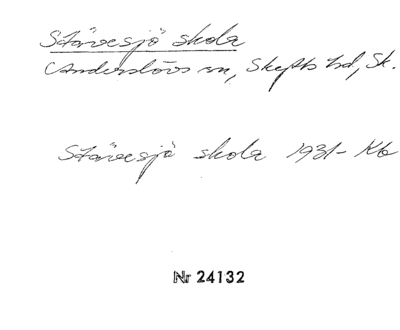 Stävesjö skola
Anderslövs sn, Skytts hd, Sk.
Stävesjö skola 1931- Kb
Nr 24132